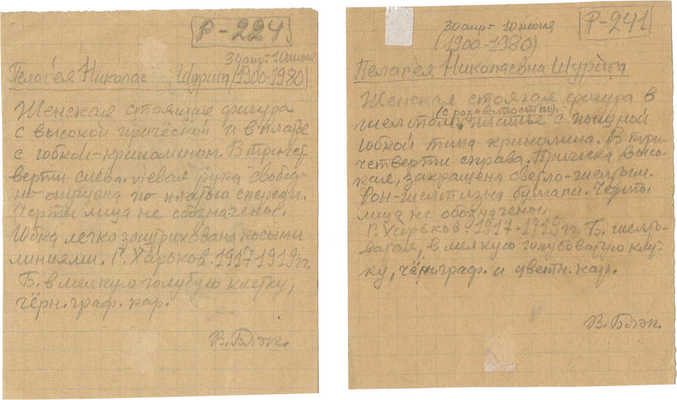 Р-224
30 апр.- 10 июня
Пелагея Николае Шурига (1900-1980)
Женская стоящая фигура
с высокой прической и в платье
с юбкой-кринолином. В три чет-
верти слева. Левая рука свобод-
но опущена по платью спереди.
Черты лица не обозначены.
Юбка легко заштрихована косыми
линиями. Г. Харьков. 1917-1919 гг.
Б. в мелкую голубую клетку,
чёрн. граф. кар.
В. Блэк.
Р-241
30 апр.- 10 июня
(1900-1980)
Пелагея Николаевна Шурига
Женская стоящая фигура в
(с розоватостью)
желтом платье с пышной
юбкой типа кринолина. В три
четверти справа. Прическа высо-
кая, закрашена светло-желтым.
Фон-желтизна бумаги. Черты
лица не обозначены.
Г. Харьков. 1917-1919 гг. Б. желто-
ватая, в мелкую голубоватую клет-
ку, чёрн. граф. и цветн. кар.
В. Блэк.